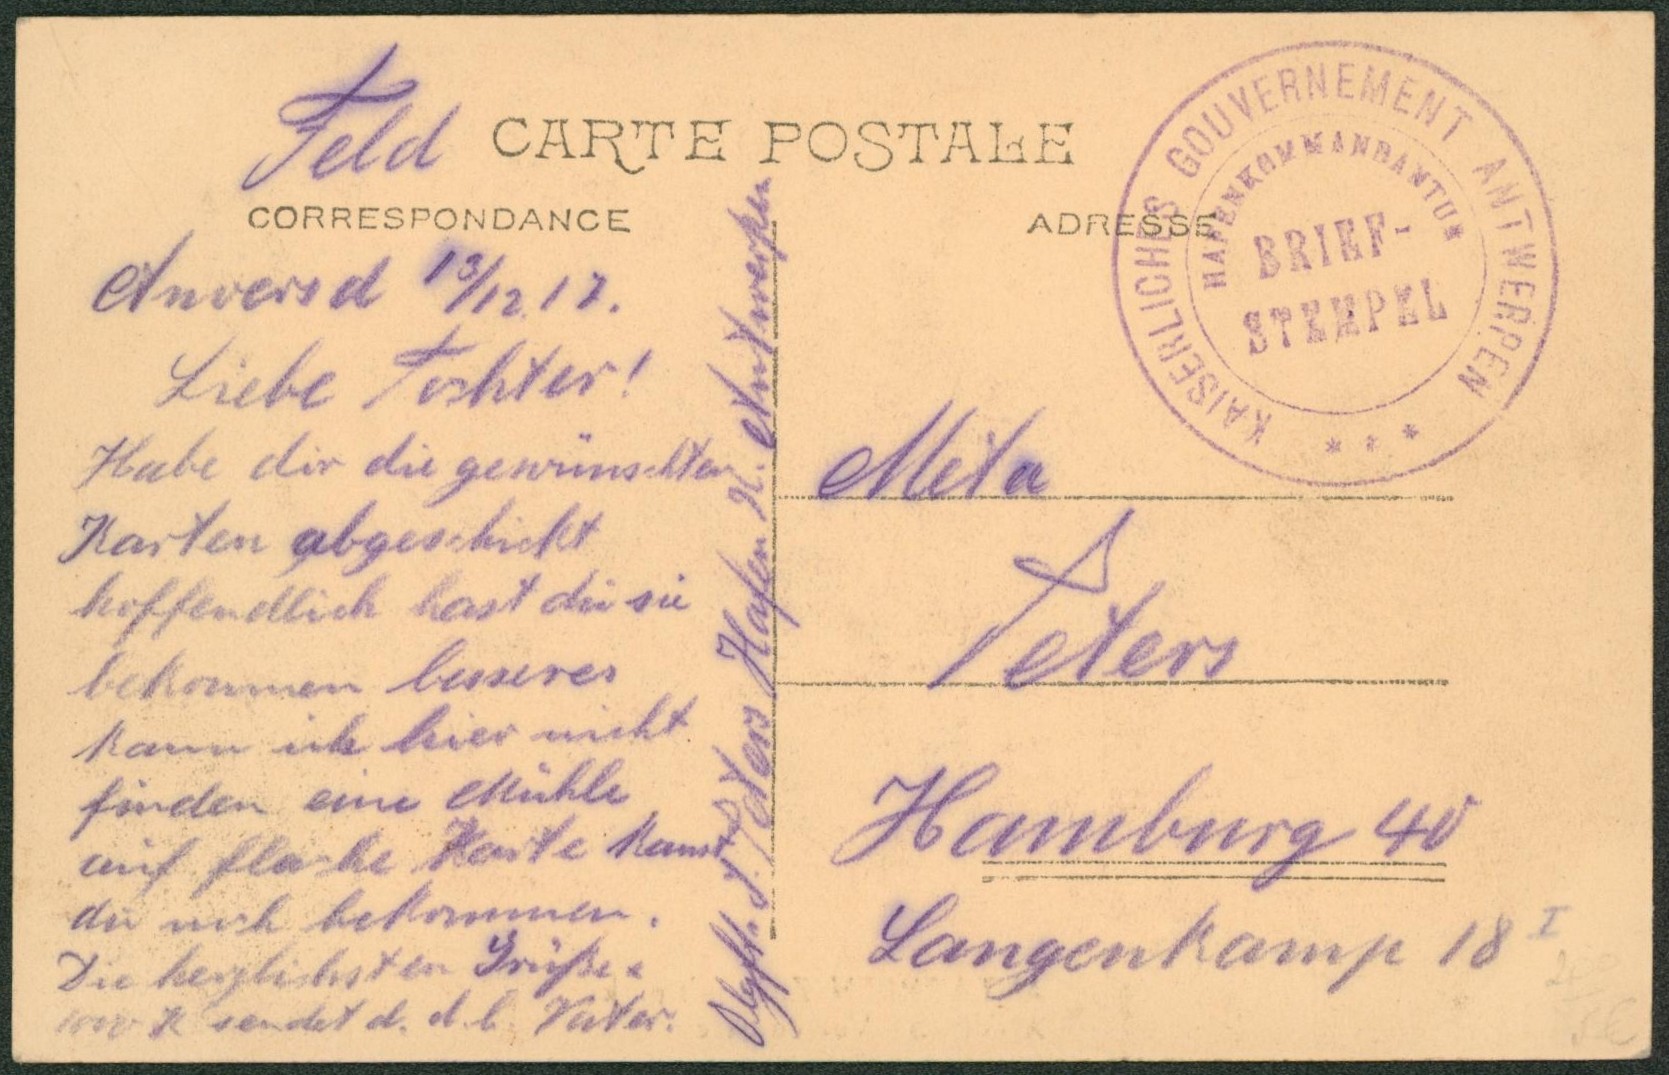 Feld
CARTE POSTALE
CORRESPONDANCE
ADRESSE
KAISERLICHES GOUVERNEMENT ANTWERPEN
HAFENKOMMANDANTUR
BRIEF-
STEMPEL
* * *
Anvers d 13/12.17.
Liebe Tochter!
Habe dir die gewünschten
Karten abgeschickt
hoffendlich hast du sie
bekommen besseres
kann ich hier nicht
finden eine Mühle
auf flache Karte kanst
du noch bekommen.
Die herzlichsten Grüße u
1000 K sendet d. d. l. Vater.
Peters Hafen K. Antwerpen
Meta
Peters
Hamburg 40
Langenkamp 18 I